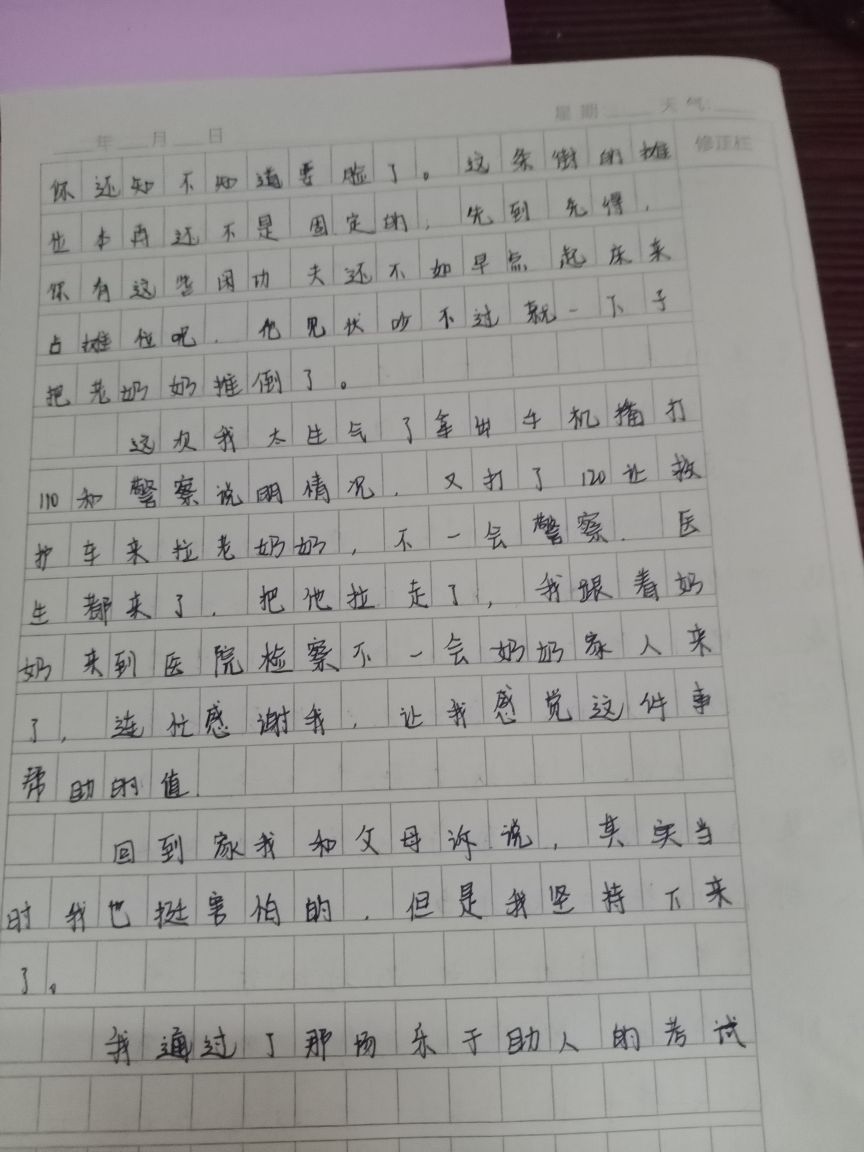 年 月 日 星期: 天气:
修正栏
你还知不知道要脸了。这条街的摊
位本再还不是固定的,先到先得,
你有这些闲功夫还不如早点起床来
占摊位呢,他见状吵不过就一下子
把老奶奶推倒了。
这次我太生气了拿出手机捅打
110和警察说明情况,又打了120让救
护车来拉老奶奶,不一会警察.医
生都来了,把他拉走了,我跟着奶
奶来到医院检察不一会奶奶家人来
了,连忙感谢我,让我感觉这件事
帮助的值.
回到家我和父母诉说,其实当
时我也挺害怕的,但是我坚持下来
了。
我通过了那场乐于助人的考试